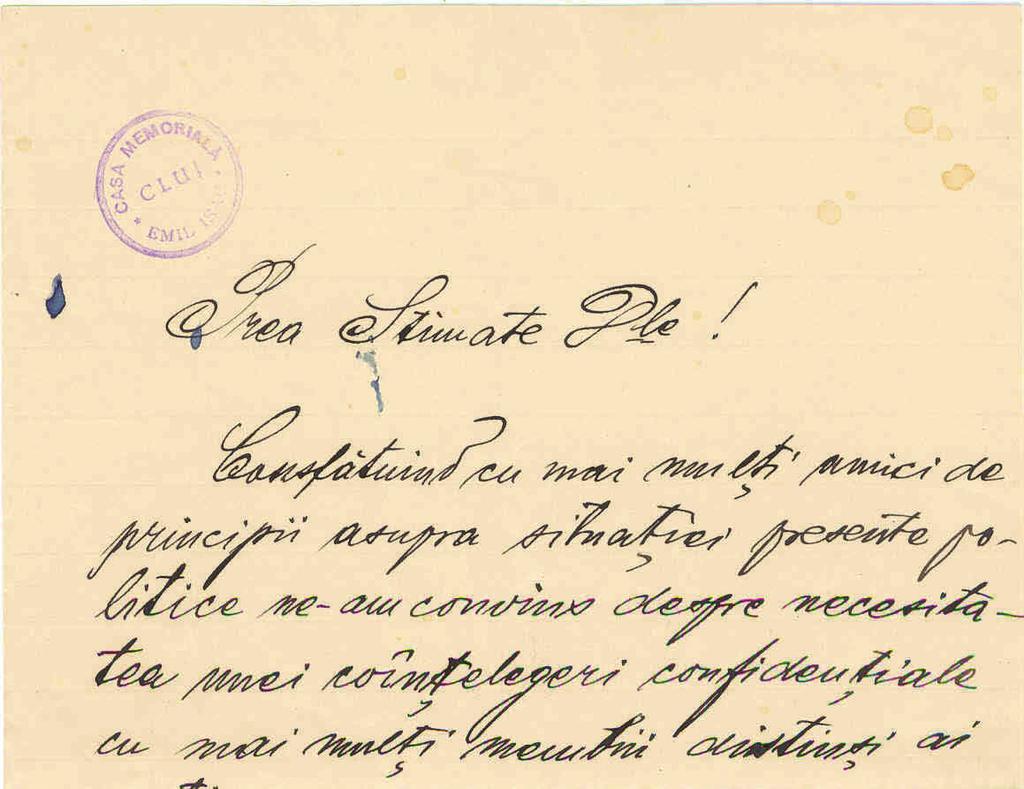 CASA MEMORIALĂ
CLUJ
* EMIL ISAC *
Prea Stimate Dle !
Consfătuind cu mai mulți amici de
principii asupra situației presente po-
litice ne-am convins despre necesita-
tea unei coînțelegeri confidențiale
cu mai mulți membrii distinși ai